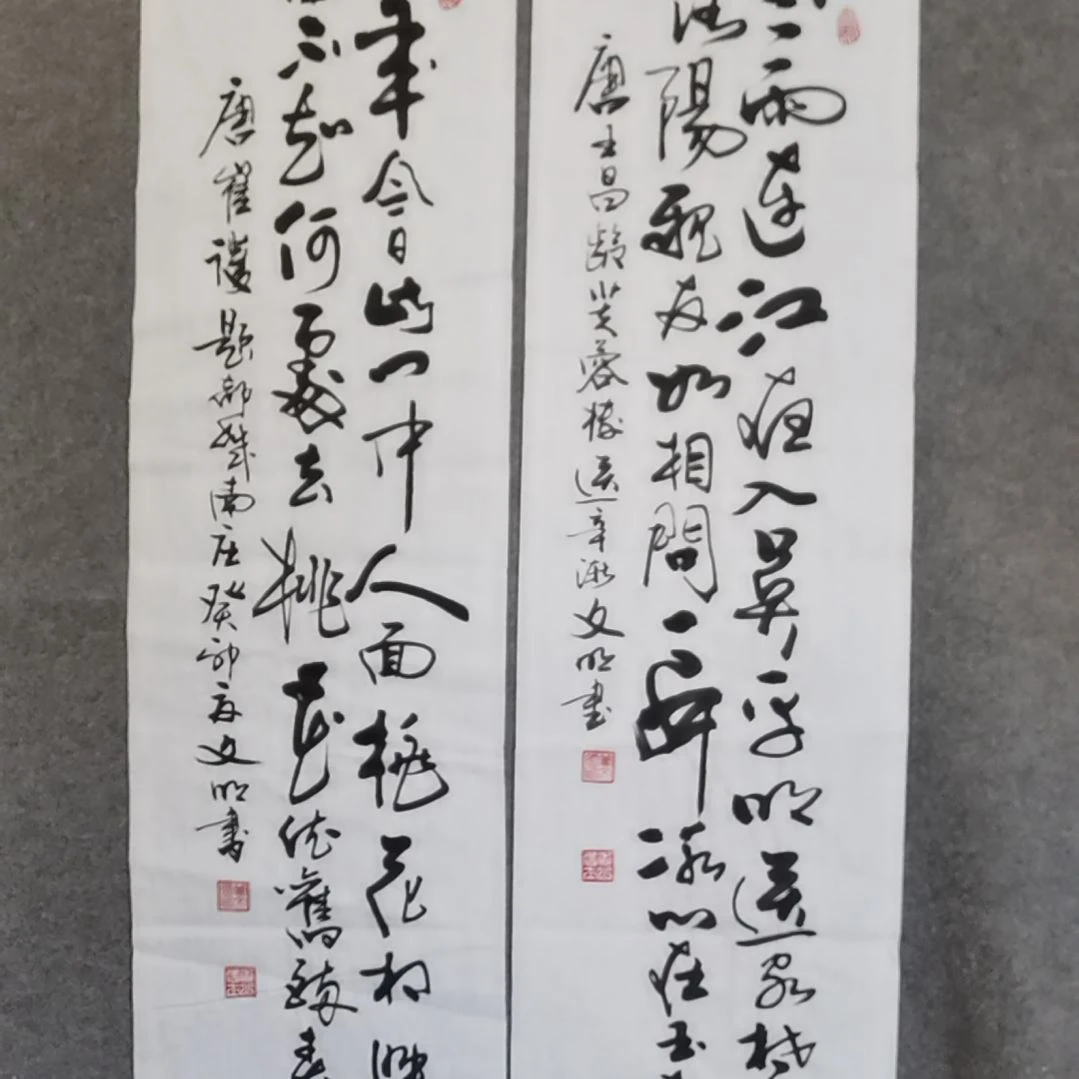 雨連江夜入吴平明送客楚
洛陽親友如相問一片冰心在玉
唐王昌齡芙蓉樓送辛漸文明書
年今日此门中人面桃花相映
不知何處去桃花依舊笑春
唐崔護題都城南庄癸卯夏文明書